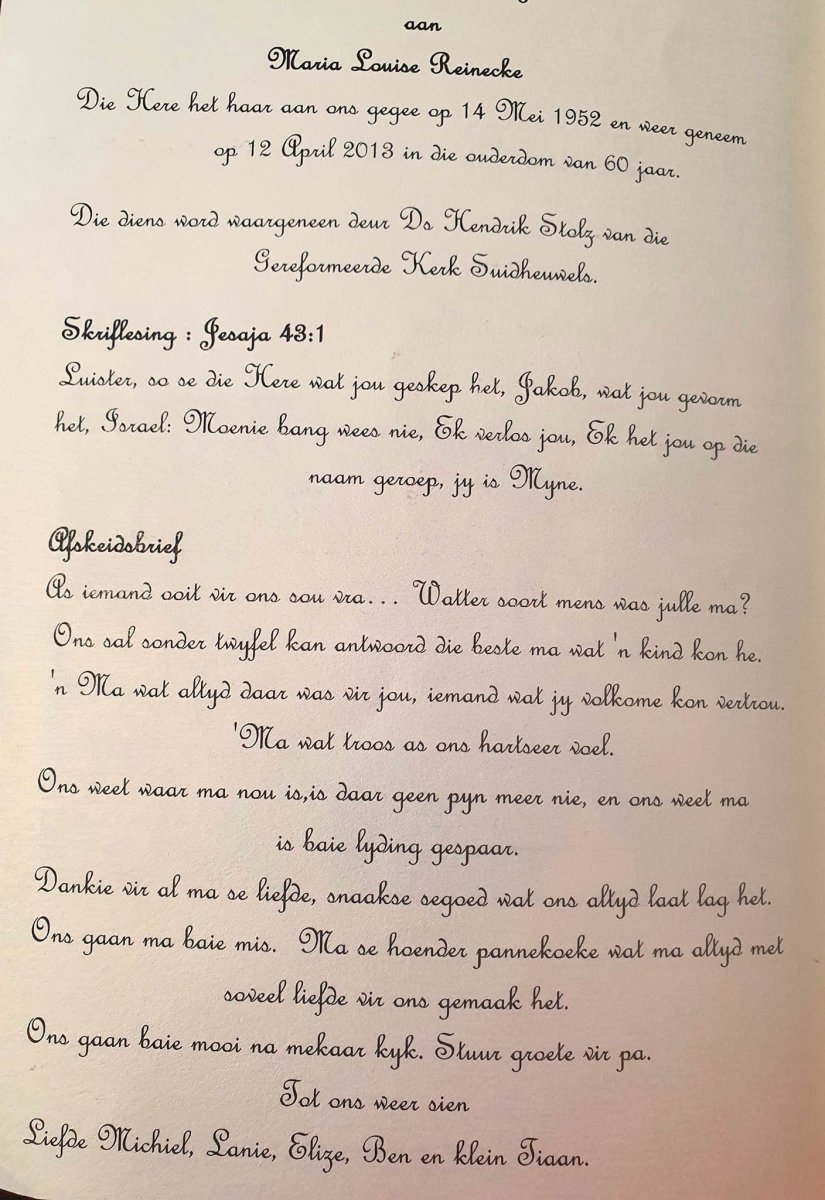 aan
Maria Louise Reinecke
Die Here het haar aan ons gegee op 14 Mei 1952 en weer geneem
op 12 April 2013 in die ouderdom van 60 jaar.
Die diens word waargeneen deur Ds Hendrik Stolz van die
Gereformeerde Kerk Suidheuwels.
Skriflesing : Jesaja 43:1
Luister, so se die Here wat jou geskep het, Jakob, wat jou gevorm
het, Israel: Moenie bang wees nie, Ek verlos jou, Ek het jou op die
naam geroep, jy is Myne.
Afskeidsbrief
As iemand ooit vir ons sou vra... Watter soort mens was julle ma?
Ons sal sonder twyfel kan antwoord die beste ma wat 'n kind kon he.
'n Ma wat altyd daar was vir jou, iemand wat jy volkome kon vertrou.
'Ma wat troos as ons hartseer voel.
Ons weet waar ma nou is,is daar geen pyn meer nie, en ons weet ma
is baie lyding gespaar.
Dankie vir al ma se liefde, snaakse segoed wat ons altyd laat lag het.
Ons gaan ma baie mis. Ma se hoender pannekoeke wat ma altyd met
soveel liefde vir ons gemaak het.
Ons gaan baie mooi na mekaar kyk. Stuur groete vir pa.
Tot ons weer sien
Liefde Michiel, Lanie, Elize, Ben en klein Tiaan.